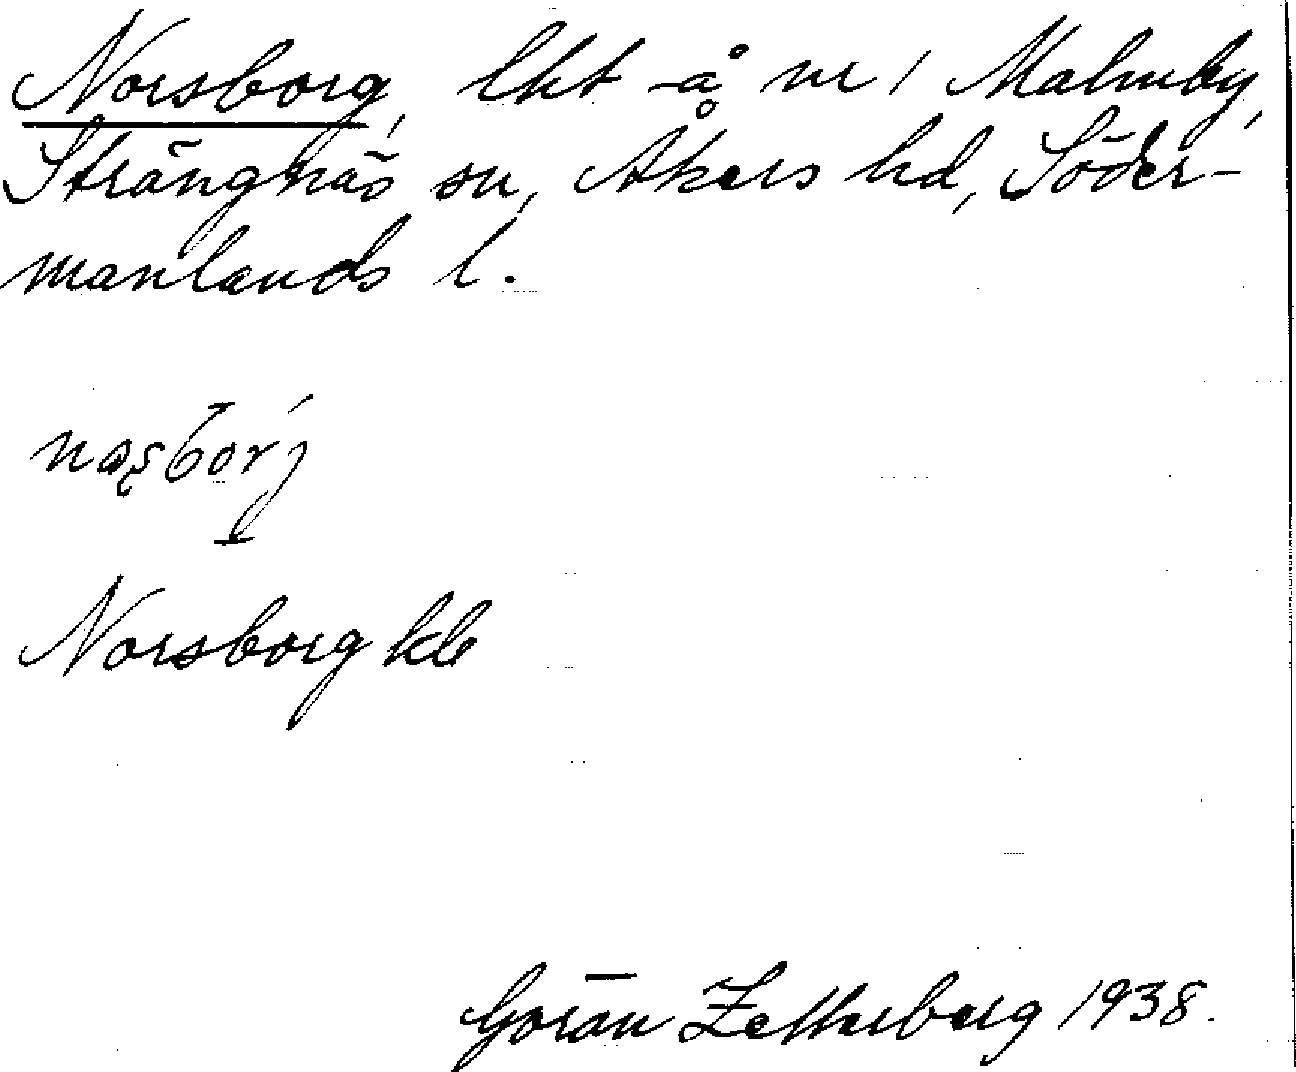 Norsborg, lht å nr 1 Malmby,
Strängnäs sn, Åkers hd, Söder-
manlands l.
Norsborg kb
Göran Zetterberg 1938.